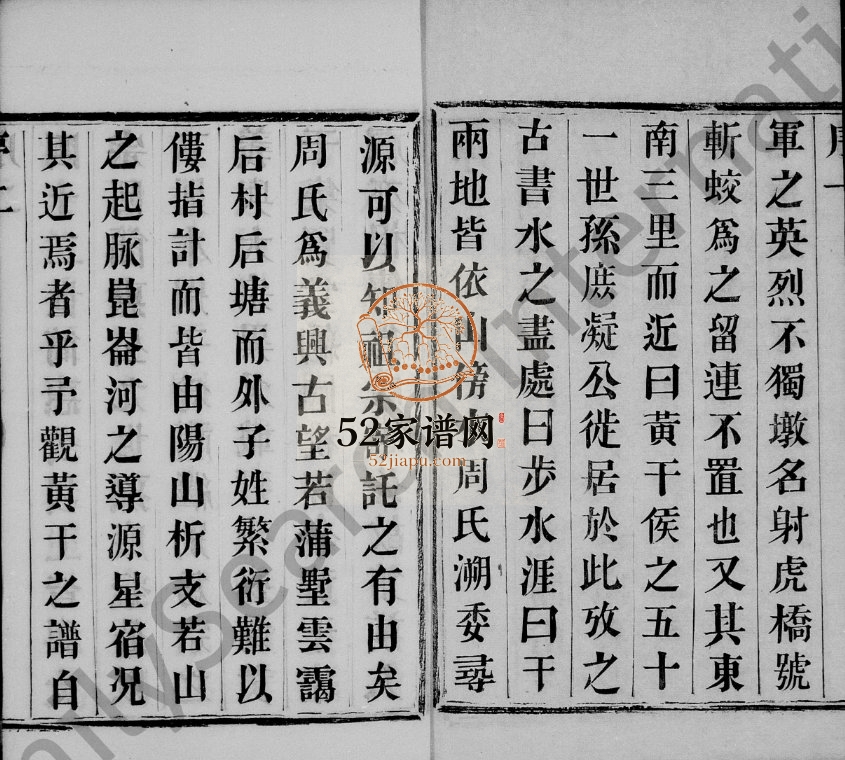 序一
軍之英烈不獨墩名射虎橋號
斬蛟爲之留連不置也又其東
南三里而近曰黃干侯之五十
一世孫庶凝公徙居於此攷之
古書水之盡處曰步水涯曰干
兩地皆依山傍
周氏溯委尋
源可以知祖宗
託之有由矣
周氏爲義興古望若蒲墅雲靄
后村后塘而外子姓繁衍難以
僂指計而皆由陽山析支若山
之起脉崑崙河之導源星宿况
其近焉者乎予觀黃干之譜自
序二
52家谱网
52jiapu.com
FamilySearch International